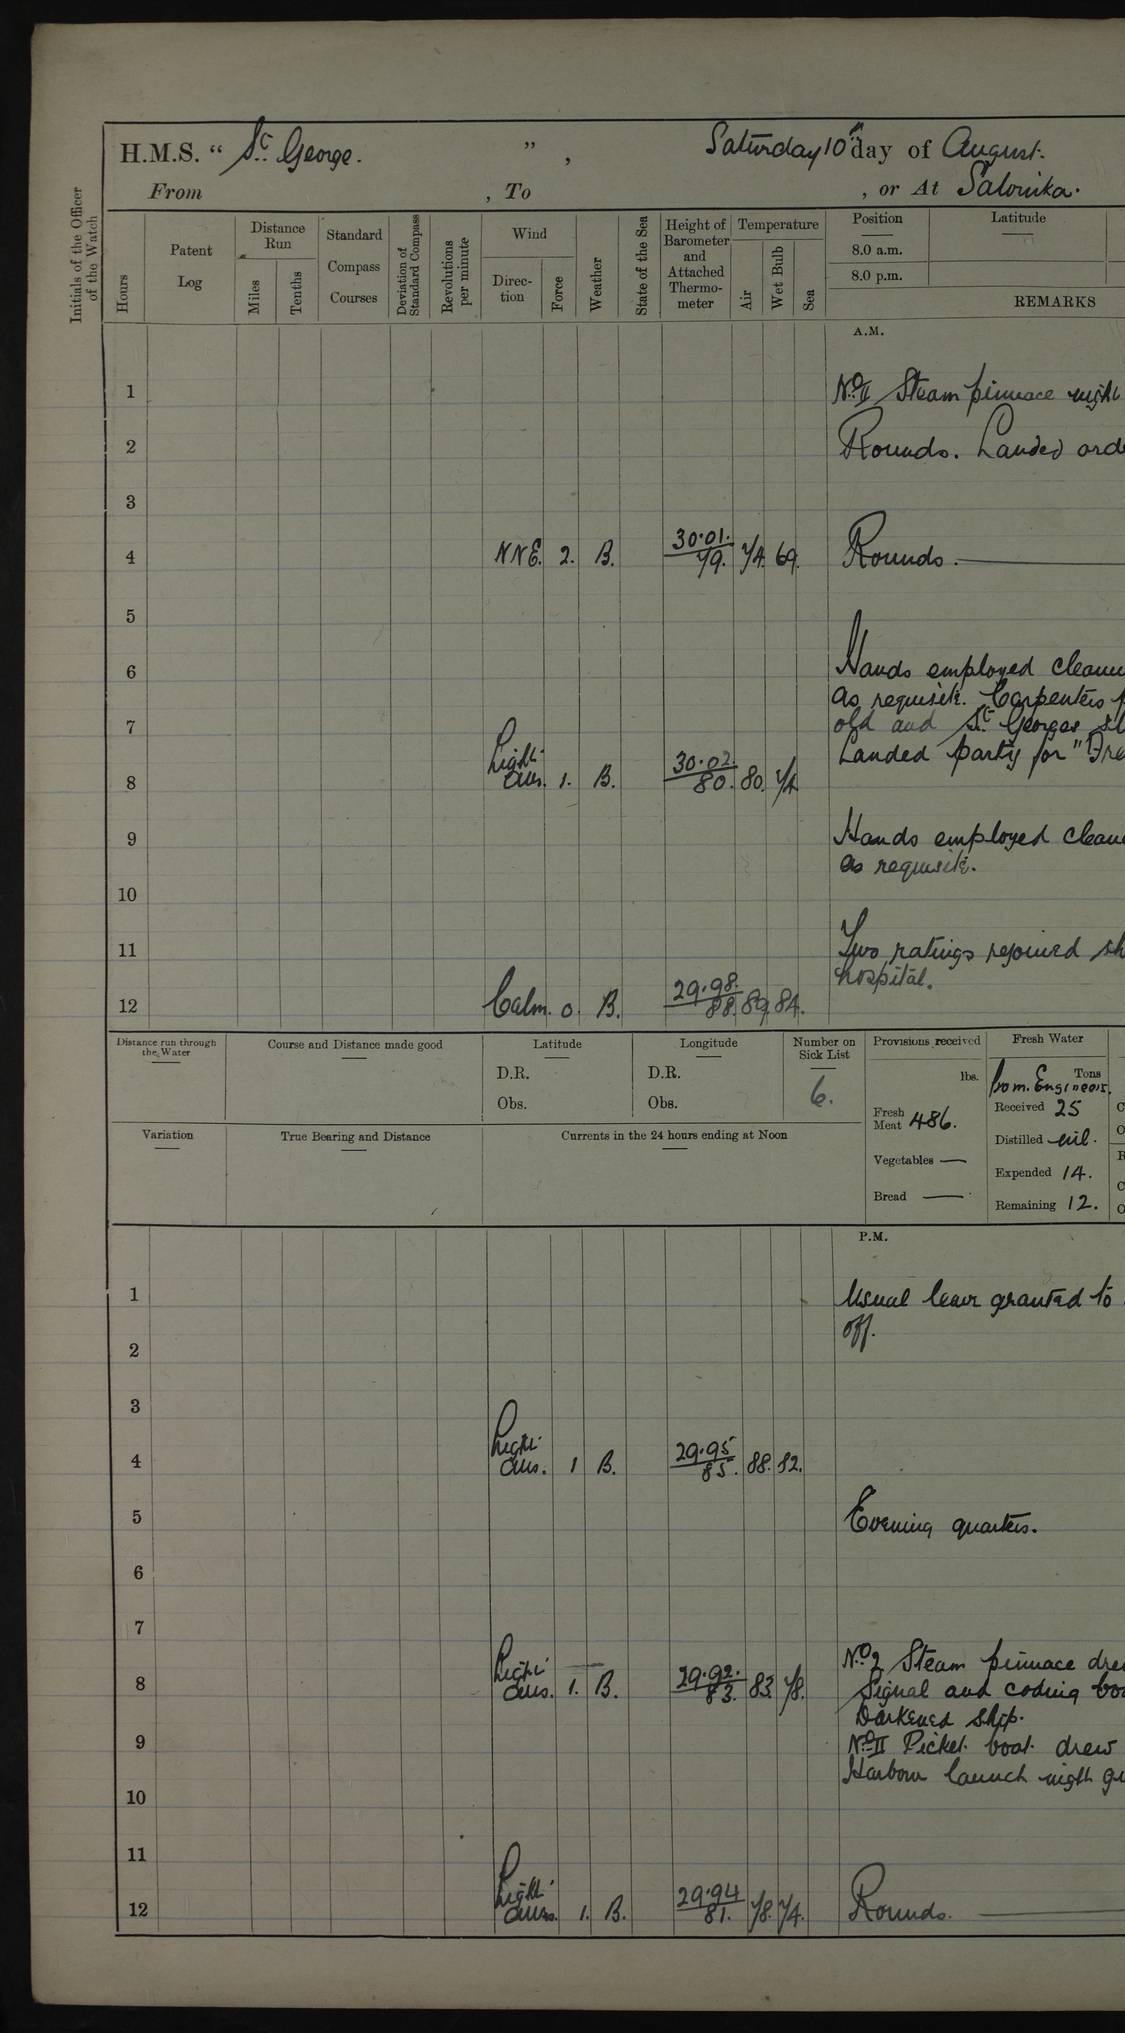 H.M.S. “ St George. ” , Saturday 10th day of August.
From , To , or At Salonika.
Initials of the Officer of the Watch
Hours
Patent Log
Distance Run
Miles
Tenths
Standard Compass Courses
Deviation of Standard Compass
Revolutions per minute
Wind
Direc-tion
Force
Weather
State of the Sea
Height of Barometer and Attached Thermo-meter
Temperature
Air
Wet Bulb
Sea
Position
8.0 a.m.
8.0 p.m.
Latitude
REMARKS
A.M.
1 No II Steam pinnace night
2 Rounds. Landed ord
3
4 NNE. 2. B. 30.01. 79. 74. 69. Rounds.
5
6 Hands employed clean
as requisite. Carpenters
7 old and St Georges
Landed party for "
8 Light airs. 1. B. 30.02. 80. 80. 74
9 Hands employed clean
as requisite.
10
11 Two ratings rejoined sh
hospital.
12 Calm. 0. B. 29.98. 88. 89. 84.
Distance run through the Water
Course and Distance made good
Latitude
D.R.
Obs.
Longitude
D.R.
Obs.
Number on Sick List
6.
Provisions received
lbs.
Fresh Meat 486.
Vegetables —
Bread —
Fresh Water
Tons
from Engineers.
Received 25
Distilled nil.
Expended 14.
Remaining 12.
Variation
True Bearing and Distance
Currents in the 24 hours ending at Noon
P.M.
1 Usual leave granted to
off.
2
3
4 Light airs. 1 B. 29.95 85. 88. 82.
5 Evening quarters.
6
7
No 2 Steam pinnace drew
8 Light airs. 1. B. 29.92. 83. 83. 78. Signal and coding boo
Darkened ship.
9 No II Picket boat drew
Harbour launch nigth gu
10
11
12 Light airs. 1. B. 29.94 81. 78. 74. Rounds.